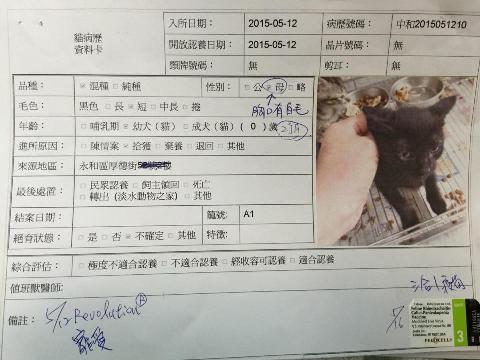 貓病歷
資料卡
入所日期： 2015-05-12 病歷號碼： 中和2015051210
開放認養日期： 2015-05-12 晶片號碼： 無
頸牌號碼： 無 剪耳： 無
品種： ☑混種 □純種 性別： □公 ☑母 □略
毛色： 黑色 □長 ☑短 □中長 □捲 胸口有白毛
年齡： □哺乳期 ☑幼犬（貓） □成犬（貓）（ 0 ）歲 2個月
進所原因： □陳情案 ☑拾獲 □棄養 □退回 □其他
來源地區： 永和區厚德街
最後處置： □民眾認養 □飼主領回 □死亡
□轉出（淡水動物之家） □其他
結案日期： 籠號： A1
絕育狀態： □是 □否 ☑不確定 □其他 特徵：
綜合評估： □極度不適合認養 □不適合認養 □經收容可認養 □適合認養
值班獸醫師：
備註： 5/12 Revolution®
寵愛
Feline Rhinotracheitis-
Calici-Panleukopenia
Vaccine
Modified Live Virus
FELOCELL 3